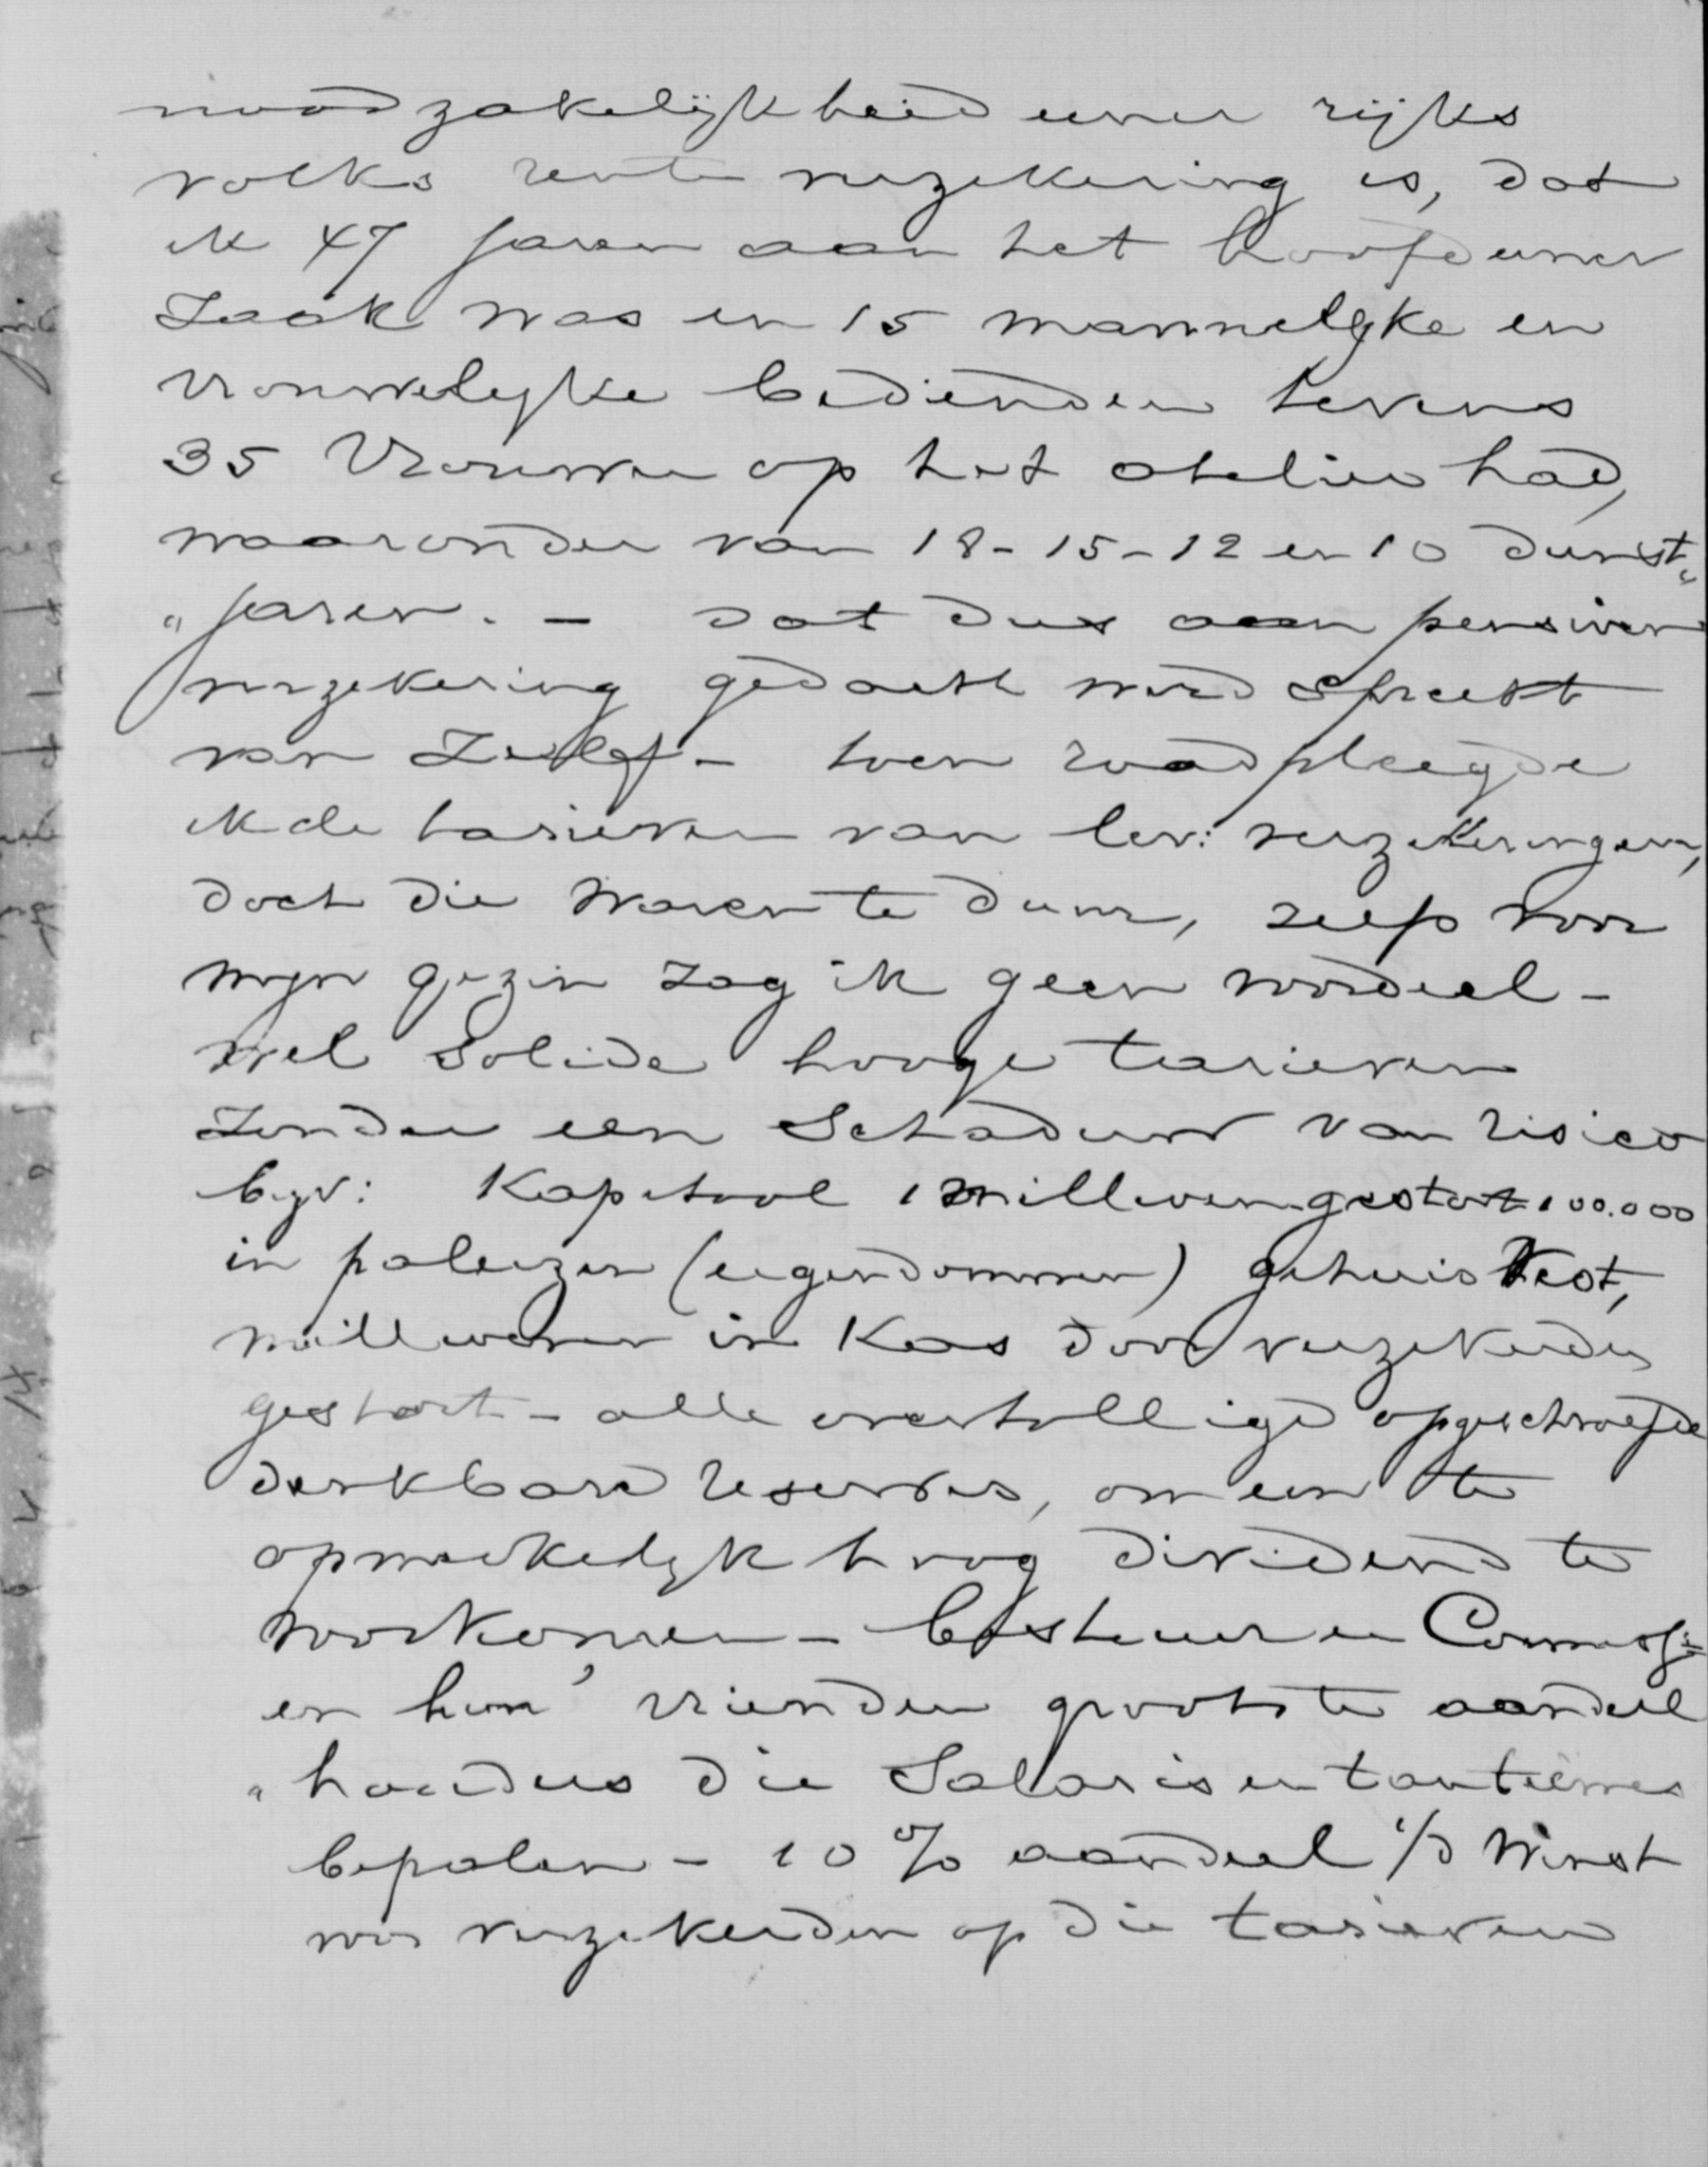 noodzakelijkheid eener rijks
volks rente verzekering is, dat
ik 47 jaren aan het hoofd eener
Zaak was en 15 mannelyke en
vrouwelyke bedienden tevens
35 Vrouwen op het atelier had,
waaronder van 18-15-12 en 10 dienst„
„jaren. - dat dus aan pensioen
verzekering gedacht werd spreekt
van Zelf - toen raadpleegde
ik de tarieven van lev: verzekeringen,
doch die waren te duur, zelfs voor
myn gezin zag ik geen voordeel -
wel solide hooge tarieven
Zonder een Schaduw van risico
byv: Kapitaal 1 millioen gestort 100.000
in paleizen (eigendommen) gehuisvest,
millioenen in Kas door verzekerden
gestort - alle overtollige opgeschroefde
denkbare reserves, om een te
opmerkelyk hoog dividend te
voorkomen - bestuur en Commiss:
en hun' vrienden grootste aandeel
„houders die Salaris en tantièmes
bepalen - 10 % aandeel i/d Winst
voor verzekerden op die tarieven